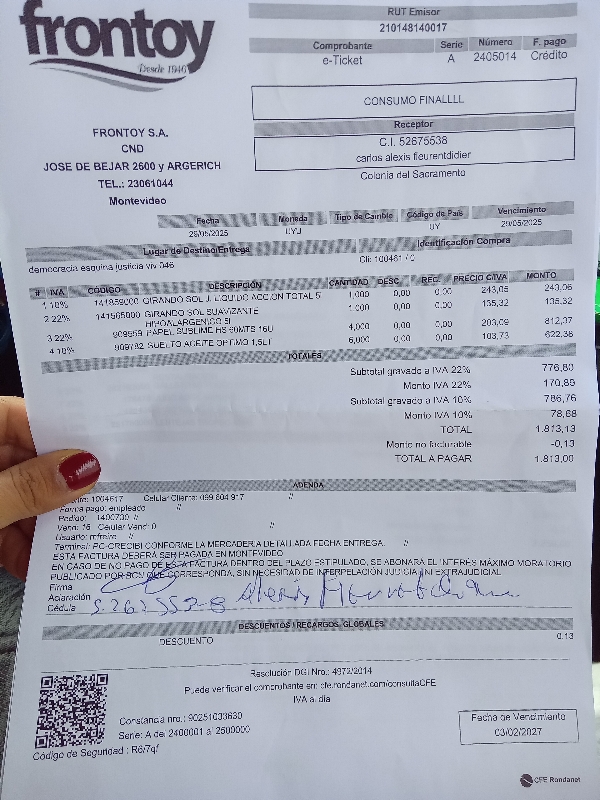 frontoy
Desde 1946
RUT Emisor
210148140017
Comprobante Serie Número F. pago
e-Ticket A 2405014 Crédito
CONSUMO FINALLLL
Receptor
C.I. 52675538
carlos alexis fleurentdidier
Colonia del Sacramento
FRONTOY S.A.
CND
JOSE DE BEJAR 2600 y ARGERICH
TEL.: 23061044
Montevideo
Fecha Moneda Tipo de Cambio Código de País Vencimiento
29/05/2025 UYU UY 29/05/2025
Lugar de Destino/Entrega Identificación Compra
democracia esquina justicia viv 046 Cli: 100461 / 0
# IVA CÓDIGO DESCRIPCIÓN CANTIDAD DESC REC. PRECIO C/IVA MONTO
1 10% 141959000 GIRANDO SOL J. LIQUIDO ACCION TOTAL 5 1,000 0,00 0,00 243,05 243,05
2 22% 141565000 GIRANDO SOL SUAVIZANTE 1,000 0,00 0,00 135,32 135,32
HIPOALARGENICO 5l
3 22% 909559 PAPEL SUBLIME HS 90MTS 16U 4,000 0,00 0,00 203,09 812,37
4 10% 909782 SUELTO ACEITE OPTIMO 1,5LT 6,000 0,00 0,00 103,73 622,38
TOTALES
Subtotal gravado a IVA 22% 776,80
Monto IVA 22% 170,89
Subtotal gravado a IVA 10% 786,76
Monto IVA 10% 78,68
TOTAL 1.813,13
Monto no facturable -0,13
TOTAL A PAGAR 1.813,00
ADENDA
1064617 Celular Cliente: 099 804 917 //
Forma pago: empleado //
Pedido: 1400700 //
Vend: 16 Celular Vend: 0 //
Usuario: refreire //
Terminal: PC-CRECIBI CONFORME LA MERCADERIA DETALLADA FECHA ENTREGA. //
ESTA FACTURA DEBERÁ SER PAGADA EN MONTEVIDEO
EN CASO DE NO PAGO DE ESTA FACTURA DENTRO DEL PLAZO ESTIPULADO, SE ABONARÁ EL INTERÉS MÁXIMO MORATORIO
PUBLICADO POR BCU QUE CORRESPONDA, SIN NECESIDAD DE INTERPELACIÓN JUDICIAL NI EXTRAJUDICIAL
Firma
Aclaración
Cédula
DESCUENTOS / RECARGOS GLOBALES
DESCUENTO 0.13
Resolución DGI Nro.: 4972/2014
Puede verificar el comprobante en: cfe.rondanet.com/consultaCFE
IVA al día
Constancia nro.: 90251033630
Serie: A del 2400001 al 2500000
Código de Seguridad : R6/7qf
Fecha de Vencimiento
03/02/2027
CFE Rondanet